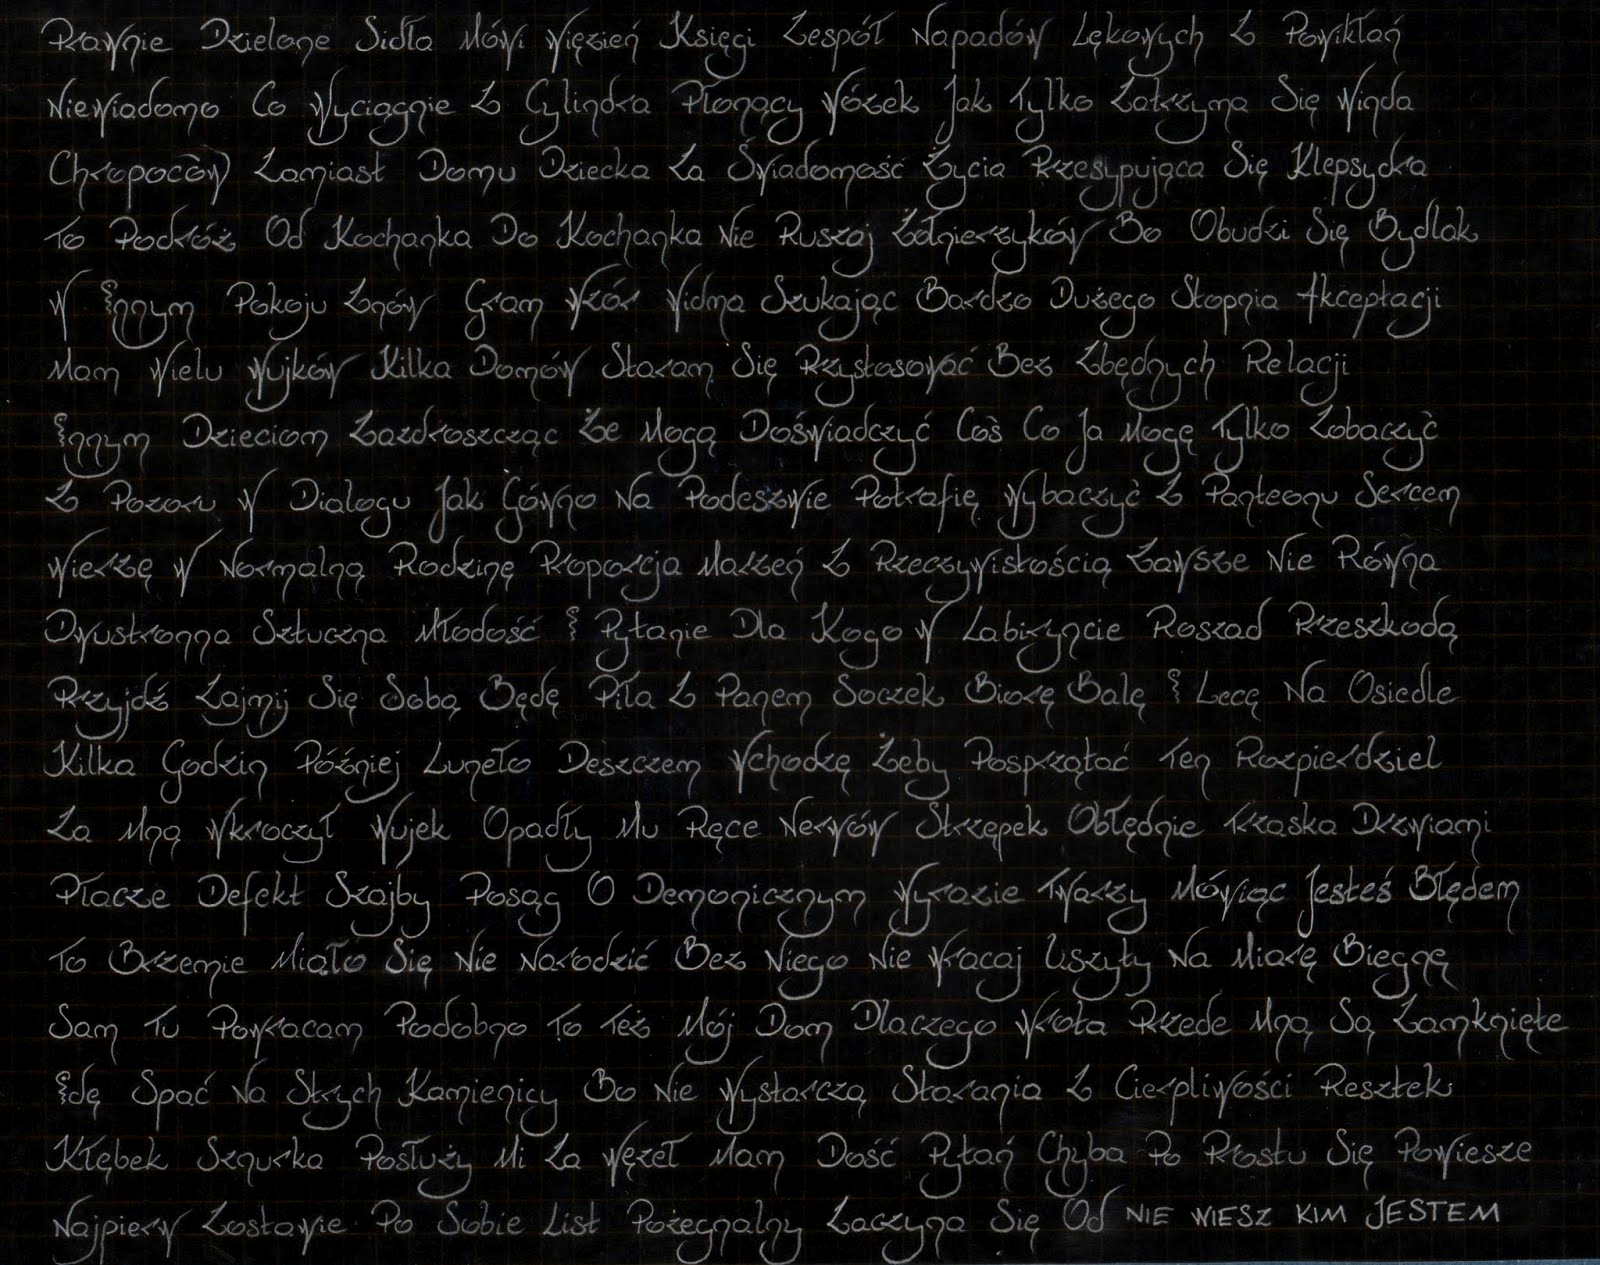 Prawnie Dzielone Sidła Mówi Więzień Księgi Zespół Napadów Lękowych Z Powikłań
Niewiadomo Co Wyciągnie Z Cylindra Płonący Wózek Jak Tylko Zatrzyma Się Winda
Chropoców Zamiast Domu Dziecka Za Świadomość Życia Przesypująca Się Klepsydra
To Podróż Od Kochanka Do Kochanka Nie Ruszaj Żołnierzyków Bo Obudzi Się Bydlak
W Innym Pokoju Znów Gram Wzór Widma Szukając Bardzo Dużego Stopnia Akceptacji
Mam Wielu Wujków Kilka Domów Staram Się Przystosować Bez Zbędnych Relacji
Innym Dzieciom Zazdroszcząc Że Mogą Doświadczyć Coś Co Ja Mogę Tylko Zobaczyć
Z Pozoru W Dialogu Jak Gówno Na Podeszwie Potrafię Wybaczyć Z Panteonu Sercem
Wierzę W Normalną Rodzinę Proporcja Marzeń Z Rzeczywistością Zawsze Nie Równa
Dwustronna Sztuczna Młodość I Pytanie Dla Kogo W Labiryncie Roszad Przeszkodą
Przyjdź Zajmij Się Sobą Będę Piła Z Panem Soczek Biorę Balę I Lecę Na Osiedle
Kilka Godzin Później Lunęło Deszczem Wchodzę Żeby Posprzątać Ten Rozpierdziel
Za Mną Wkroczył Wujek Opadły Mu Ręce Nerwów Strzępek Obłędnie Trzaska Drzwiami
Płacze Defekt Szajby Posąg O Demonicznym Wyrazie Twarzy Mówiąc Jesteś Błędem
To Brzemie Miało Się Nie Narodzić Bez Niego Nie Wracaj Uszyły Na Miarę Biegnę
Sam Tu Powracam Podobno To Też Mój Dom Dlaczego Wrota Przede Mną Są Zamknięte
Idę Spać Na Strych Kamienicy Bo Nie Wystarczą Starania Z Cierpliwości Resztek
Kłębek Sznurka Posłuży Mi Za Węzeł Mam Dość Pytań Chyba Po Prostu Się Powiesze
Najpierw Zostawie Po Sobie List Pożegnalny Zaczyna Się Od NIE WIESZ KIM JESTEM